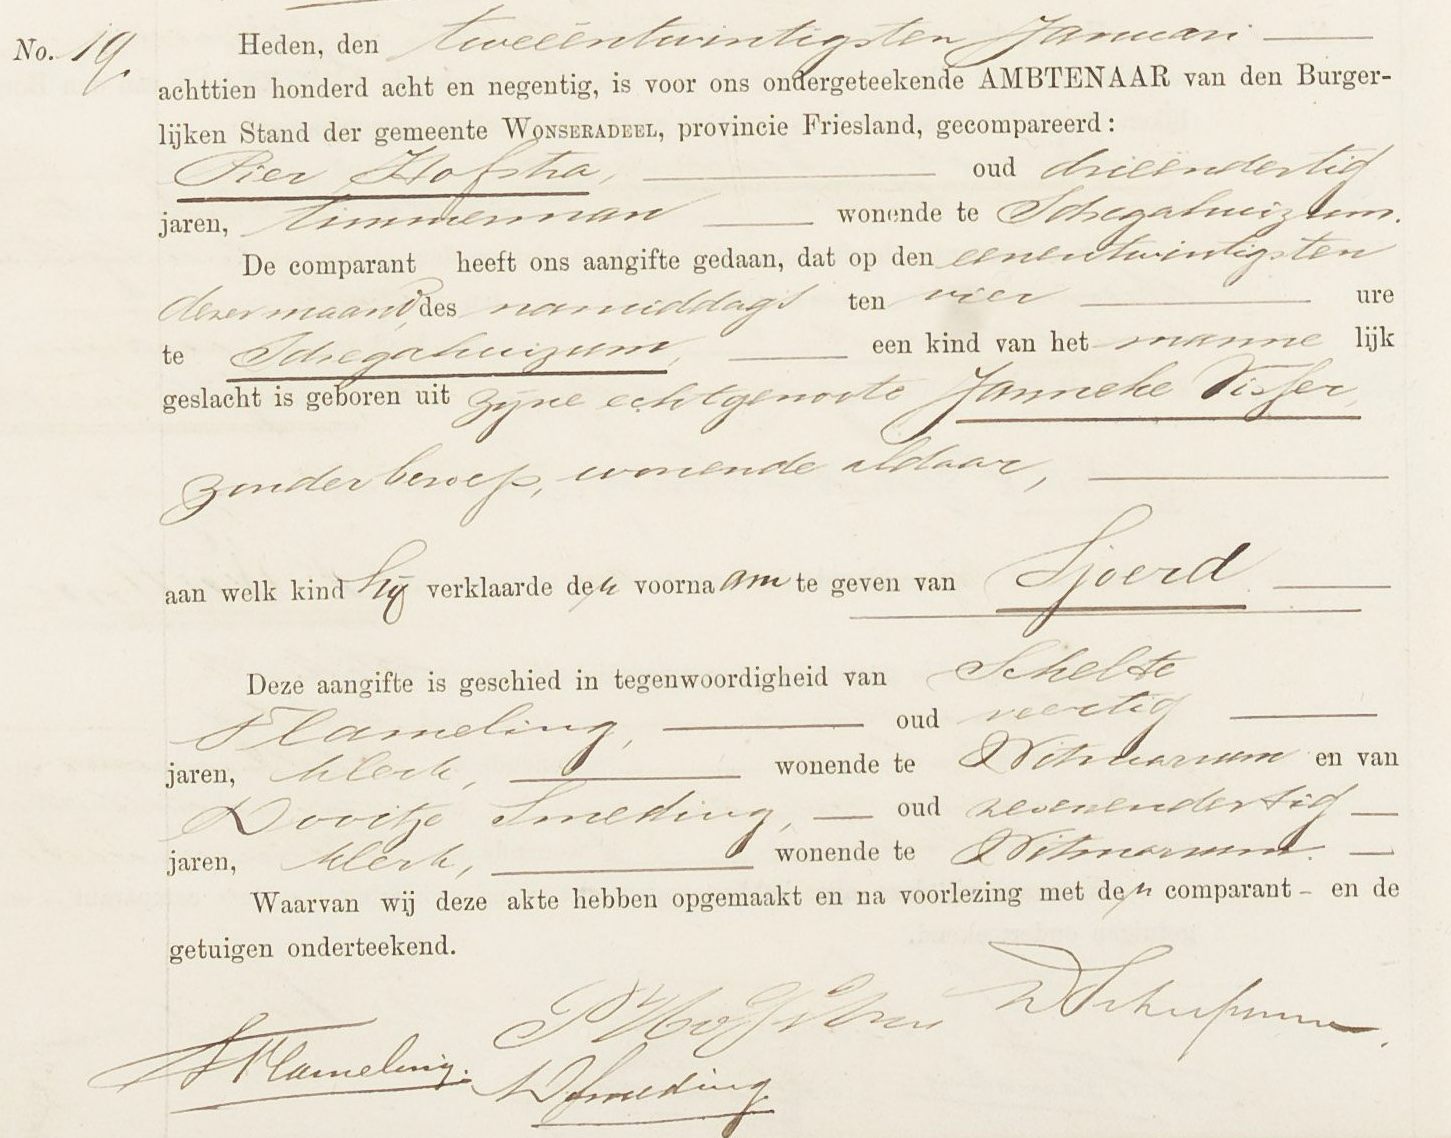 No. 19.
Heden, den tweeëntwintigsten Januari
achttien honderd acht en negentig, is voor ons ondergeteekende AMBTENAAR van den Burger-
lijken Stand der gemeente WONSERADEEL, provincie Friesland, gecompareerd:
Pier Hofstra, oud drieëndertig
jaren, timmerman wonende te Schegahuizum.
De comparant heeft ons aangifte gedaan, dat op den eenentwintigsten
dezer maand, des namiddags ten vier ure
te Schegahuizum, een kind van het mannelijk
geslacht is geboren uit zijne echtgenoote Janneke Visser,
zonder beroep, wonende aldaar,
aan welk kind hij verklaarde den voornaam te geven van Sjoerd
Deze aangifte is geschied in tegenwoordigheid van Schelte
Flameling, oud veertig
jaren, klerk, wonende te Witmarsum en van
Dooitze Smeding, oud zevenendertig
jaren, klerk, wonende te Witmarsum.
Waarvan wij deze akte hebben opgemaakt en na voorlezing met den comparant - en de
getuigen onderteekend.
P Hofstra
S Flameling.
D Smeding